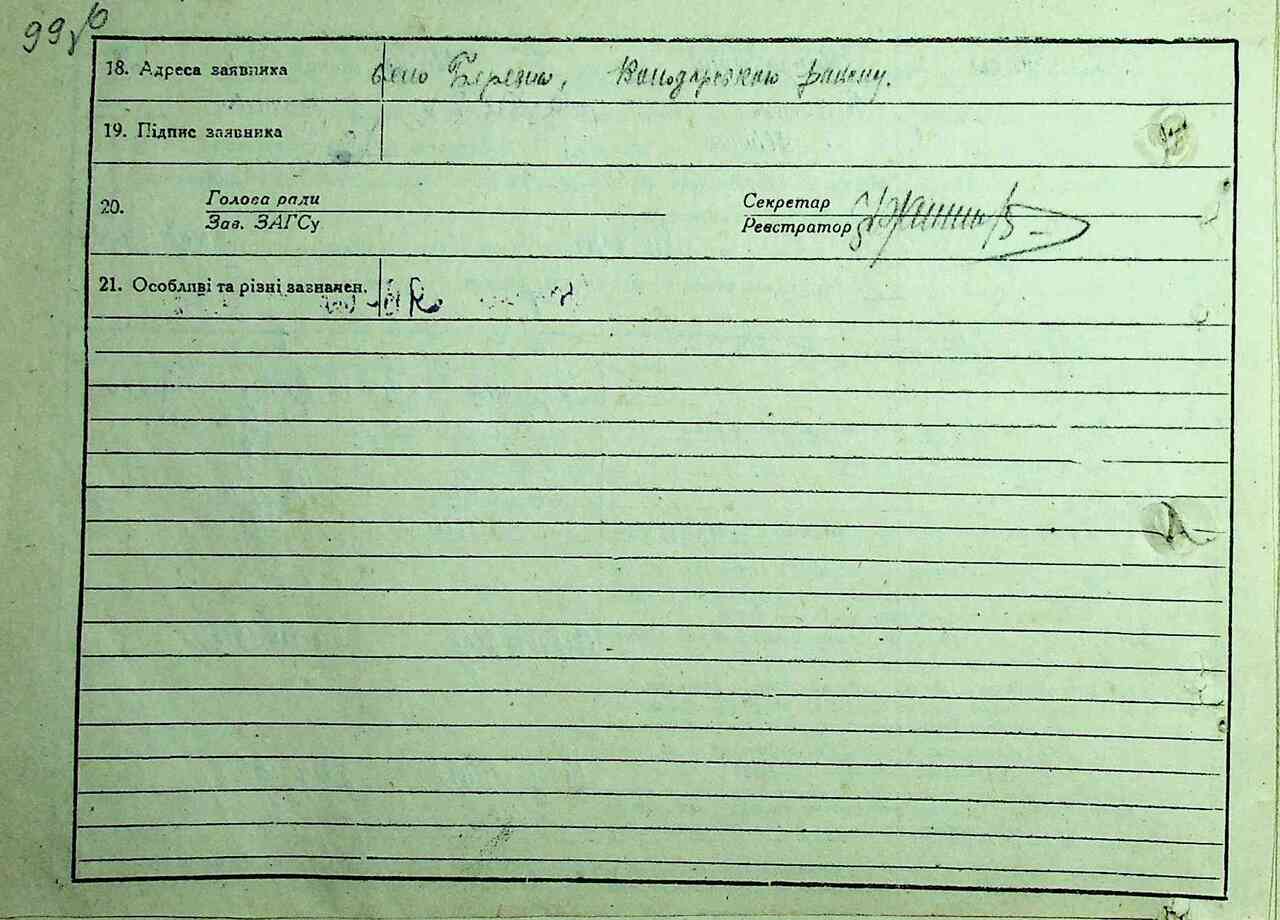 99
18. Адреса заявника село Березна, Володарського району.
19. Підпис заявника
20. Голова ради Секретар
Зав. ЗАГСу Реєстратор
21. Особливі та різні зазначен.